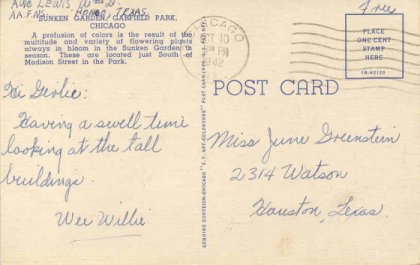 A/C LEWIS
AAFNS. HONDO, TEXAS
SUNKEN GARDEN, GARFIELD PARK,
CHICAGO
A profusion of colors is the result of the
multitude and variety of flowering plants
always in bloom in the Sunken Garden in
season. These are located just South of
Madison Street in the Park.
Hi Girlie:
Having a swell time
looking at the tall
buildings.
Wee Willie
GENUINE CURTEICH-CHICAGO "C.T. ART-COLORTONE" POST CARD
CHICAGO
OCT 10
PM
1942
Free
PLACE
ONE CENT
STAMP
HERE
1B-H2130
POST CARD
Miss June Greenstein
2314 Watson
Houston, Texas.